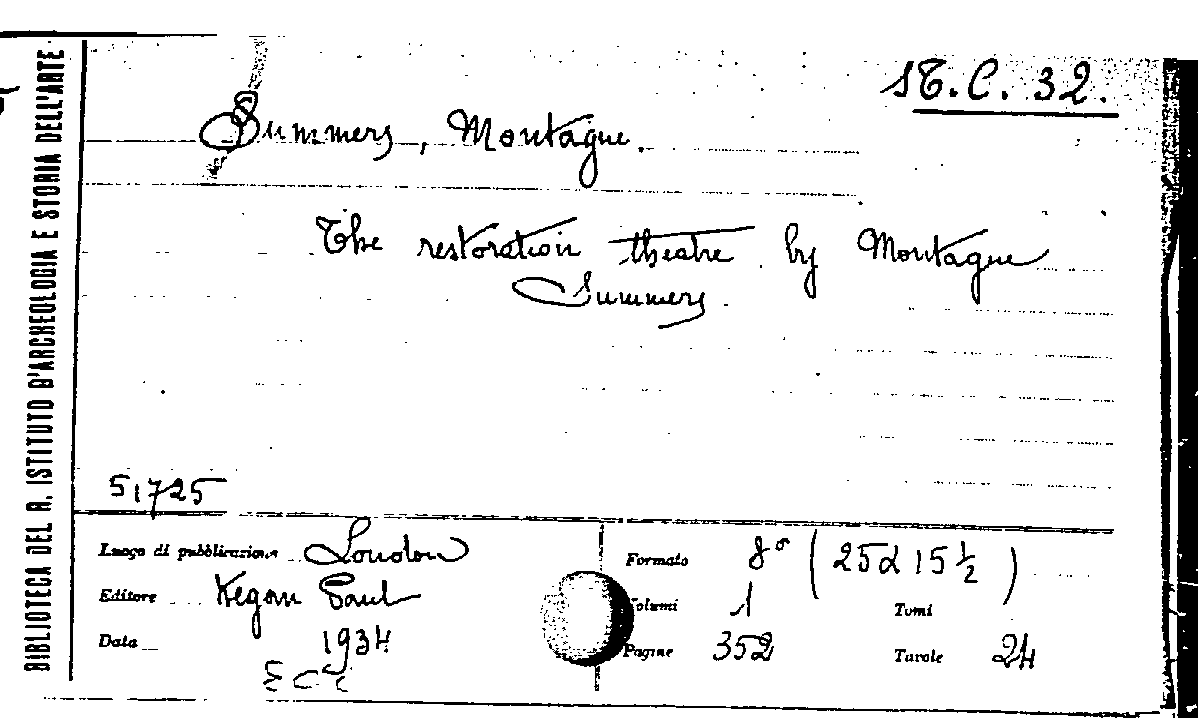 BIBLIOTECA DEL R. ISTITUTO D'ARCHEOLOGIA E STORIA DELL'ARTE
ST.C. 32.
Summers, Montague.
The restoration theatre by Montague
Summers.
51725
Luogo di pubblicazione London
Editore Kegan Paul
Data 1934
Formato 8° (25 x 15 ½)
Volumi 1 Tomi
Pagine 352 Tavole 24